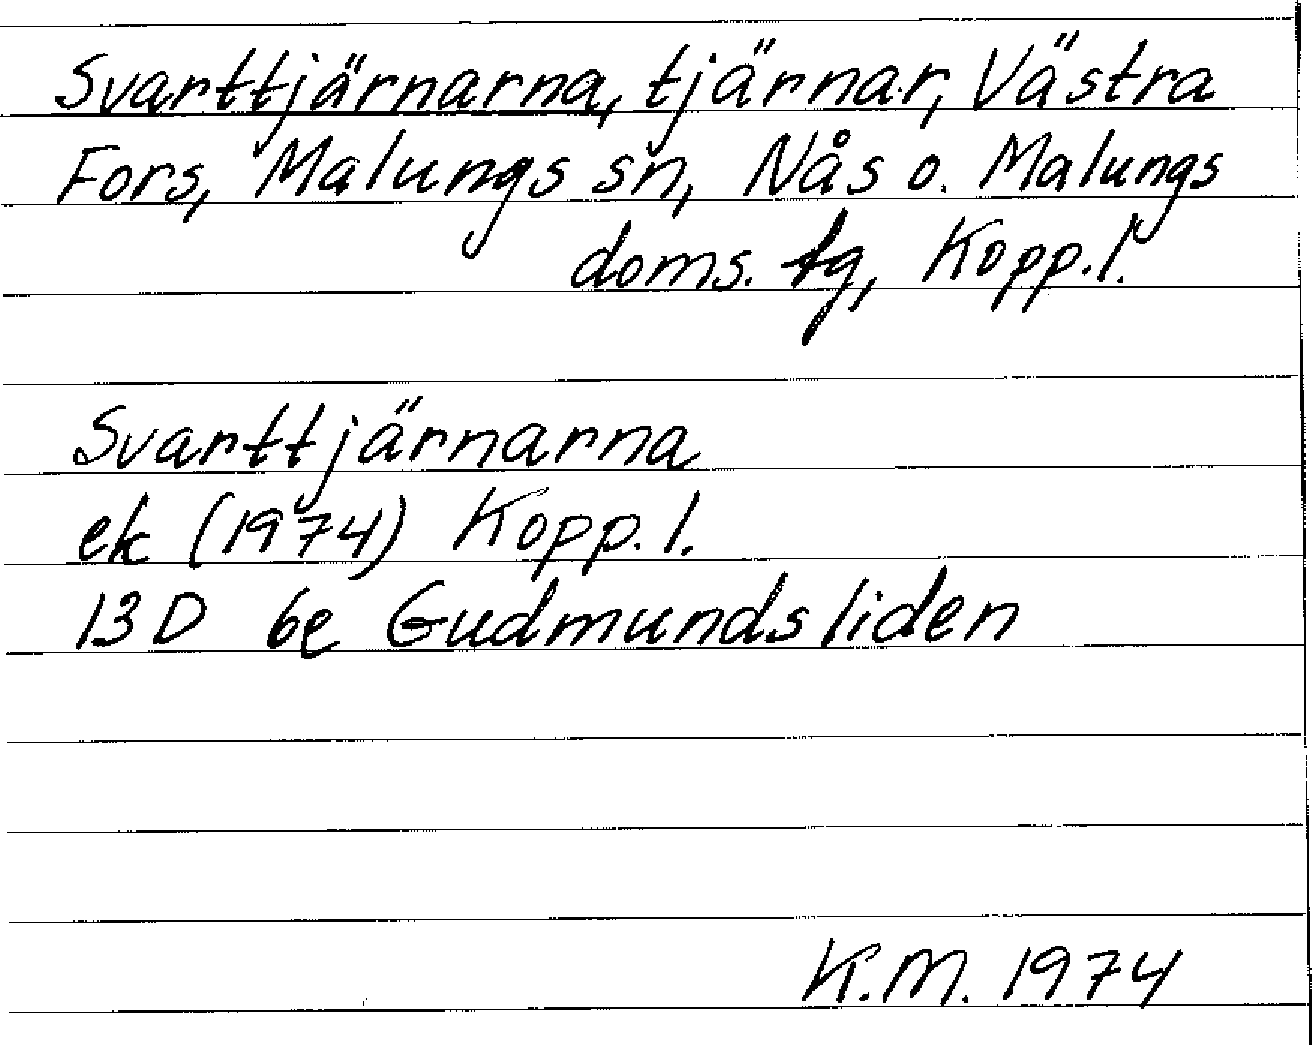 Svarttjärnarna, tjärnar, Västra
Fors, Malungs sn, Nås o. Malungs
doms. tg, Kopp. l.
Svarttjärnarna
ek (1974) Kopp. l.
13 D 6e Gudmundsliden
K.M. 1974